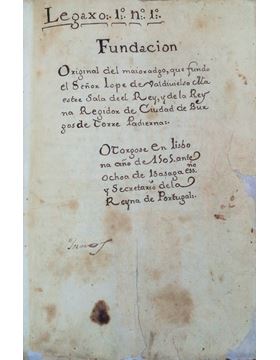 Legaxo: 1º: nº: 1º:
Fundacion
Original del maioradgo, que fundo
el Señor lope de Valdivielso Ma
estre Sala del Rey, y de la Rey
na Regidor de Ciudad de Bur
gos de Torre Padierna:
Otorgose en lisbo
na año de 1505. ante
Ochoa de Isasaga essno
y Secretario de la
Reyna de Portugal: